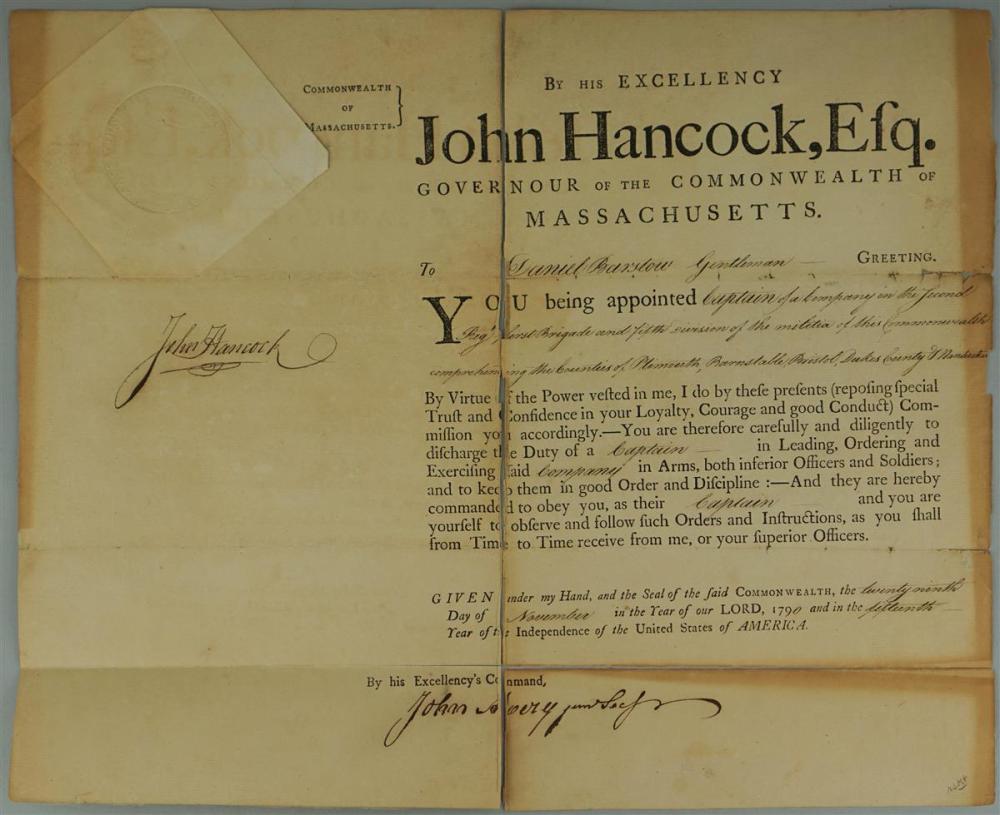 COMMONWEALTH
OF
MASSACHUSETTS.
BY HIS EXCELLENCY
John Hancock, Eſq.
GOVERNOUR OF THE COMMONWEALTH OF
MASSACHUSETTS.
To Daniel Barstow Gentleman — GREETING.
YOU being appointed Captain of a Company in the Second
Regt. first Brigade and fifth division of the militia of this Commonwealth
comprehending the Counties of Plymouth, Barnstable, Bristol, Dukes County &
John Hancock
By Virtue of the Power veſted in me, I do by theſe preſents (repoſing ſpecial
Truſt and Confidence in your Loyalty, Courage and good Conduct) Com-
miſſion you accordingly.—You are therefore carefully and diligently to
diſcharge the Duty of a Captain — in Leading, Ordering and
Exerciſing ſaid Company in Arms, both inferior Officers and Soldiers;
and to keep them in good Order and Diſcipline :—And they are hereby
commanded to obey you, as their Captain and you are
yourſelf to obſerve and follow ſuch Orders and Inſtructions, as you ſhall
from Time to Time receive from me, or your ſuperior Officers.
GIVEN under my Hand, and the Seal of the ſaid COMMONWEALTH, the twenty ninth
Day of November in the Year of our LORD, 1790 and in the fifteenth —
Year of the Independence of the United States of AMERICA.
By his Excellency's Command,
John Avery junr Secy